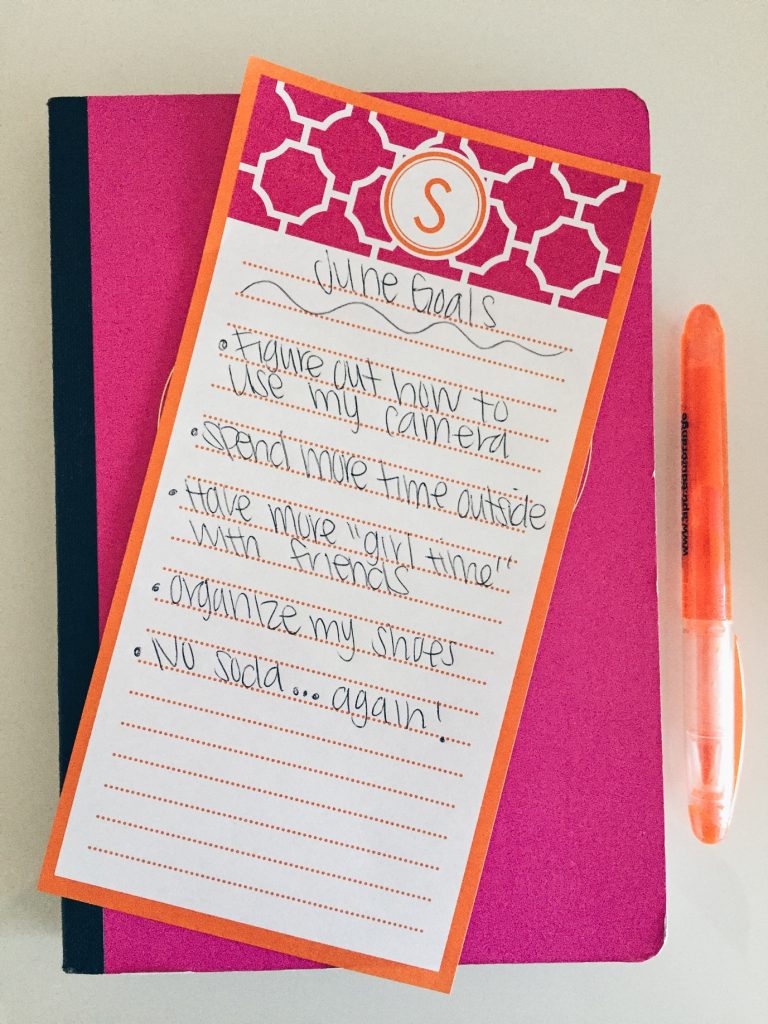 S
June Goals
• Figure out how to
use my camera
• Spend more time outside
• Have more "girl time"
with friends
• organize my shoes
• No soda... again!